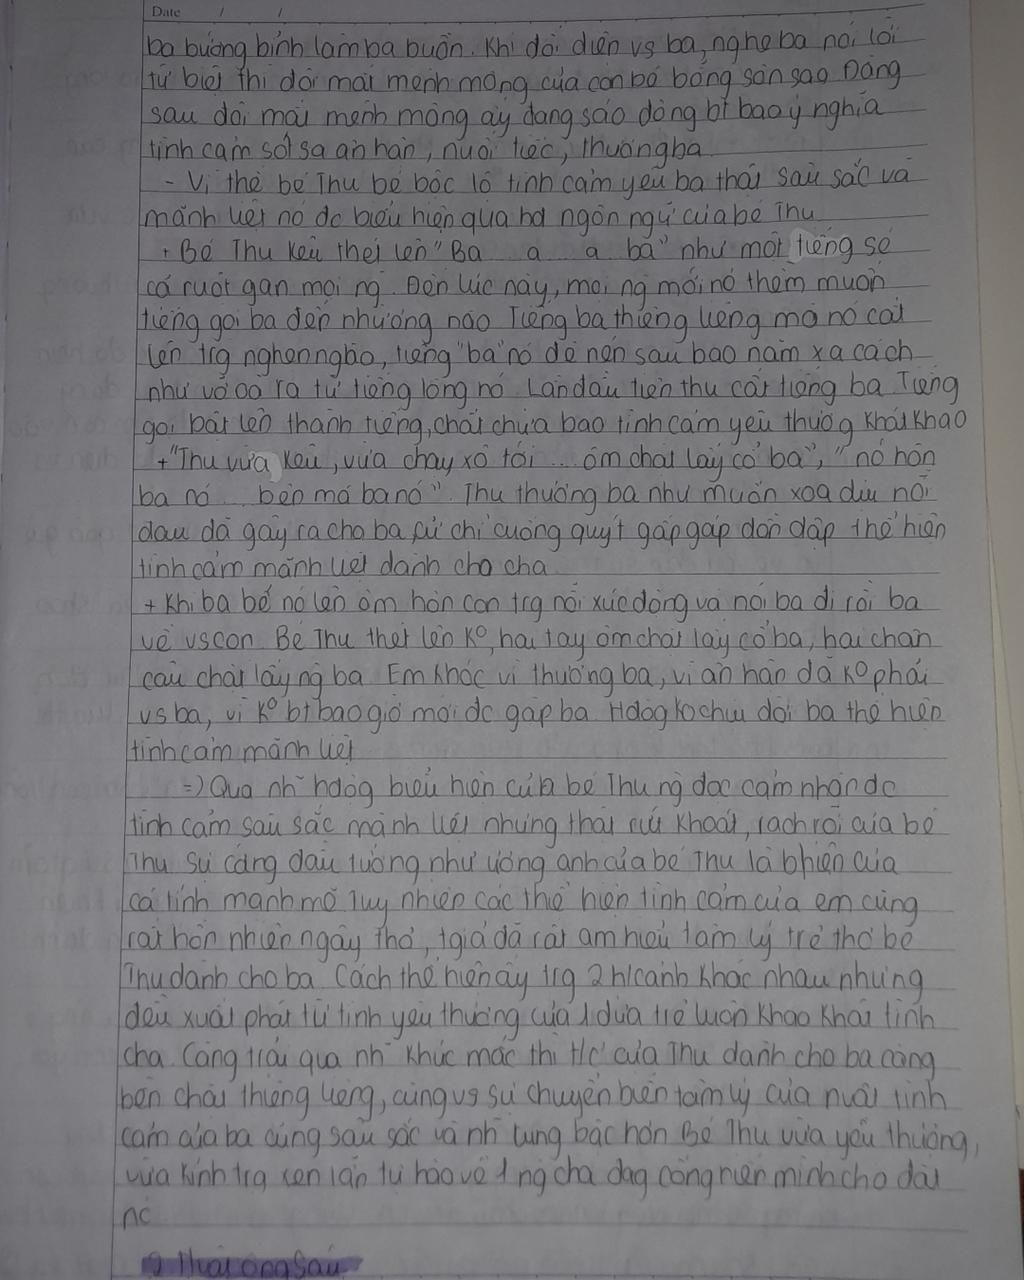 Date / /
ba bướng bỉnh làm ba buồn. Khi đối diện vs ba, nghe ba nói lời
từ biệt thì đôi mắt mênh mông của con bé bỗng sôn sao Đằng
sau đôi mắt mênh mông ấy đang sáo động bt bao ý nghĩa
tình cảm sốt sa ân hận, nuối tiếc, thương ba
- Vì thế bé Thu bé bộc lộ tình cảm yêu ba thật sâu sắc và
mãnh liệt nó đc biểu hiện qua hđ ngôn ngữ của bé Thu
+ Bé Thu kêu thét lên "Ba a a ba" như một tiếng sé
cả ruột gan mọi ng. Đến lúc này, mọi ng mới nó thèm muốn
tiếng gọi ba đến nhường nào Tiếng ba thiêng liêng mà nó cất
lên trg nghẹn ngào, tiếng "ba" nó đè nén sau bao năm xa cách
như vỡ oà ra từ tiếng lòng nó Lần đầu tiên thu cất tiếng ba Tiếng
gọi bật lên thành tiếng, chất chứa bao tình cảm yêu thươg khát khao
+ "Thu vừa kêu, vừa chạy xô tới ... ôm chặt lấy cổ ba", "nó hôn
ba nó ... bên má ba nó". Thu thương ba như muốn xoa dịu nỗi
đau đã gây ra cho ba cử chỉ cuống quýt gấp gáp dồn dập thể hiện
tình cảm mãnh liệt dành cho cha
+ Khi ba bế nó lên ôm hôn con trg nỗi xúc động và nói ba đi rồi ba
về vs con Bé Thu thét lên K°, hai tay ôm chặt lấy cổ ba, hai chân
câu chặt lấy ng ba Em khóc vì thương ba, vì ân hận đã K° phải
vs ba, vì K° bt bao giờ mới đc gặp ba Hđog ko chịu dời ba thể hiện
tình cảm mãnh liệt
=) Qua nh~ hđog biểu hiện của bé Thu ng đọc cảm nhận đc
tình cảm sâu sắc mãnh liệt nhưng thật rứt khoát, rạch ròi của bé
Thu Sự cứng đầu tưởng như ương ảnh của bé Thu là bhiện của
cá tính mạnh mẽ Tuy nhiên các thể hiện tình cảm của em cũng
rất hồn nhiên ngây thơ, tgiả đã rất am hiểu tâm lý trẻ thơ bé
Thu dành cho ba Cách thể hiện ấy trg 2 h/cảnh khác nhau nhưng
đều xuất phát từ tình yêu thương của 1 đứa trẻ luôn khao khát tình
cha Càng trải qua nh~ khúc mắc thì t/c của Thu dành cho ba càng
bền chặt thiêng liêng, cùng vs sự chuyển biến tâm lý của nvật tình
cảm của ba cũng sâu sắc và nh~ cung bậc hơn Bé Thu vừa yêu thương,
vừa kính trg xen lẫn tự hào về 1 ng cha đag cống hiến mình cho đất
nc